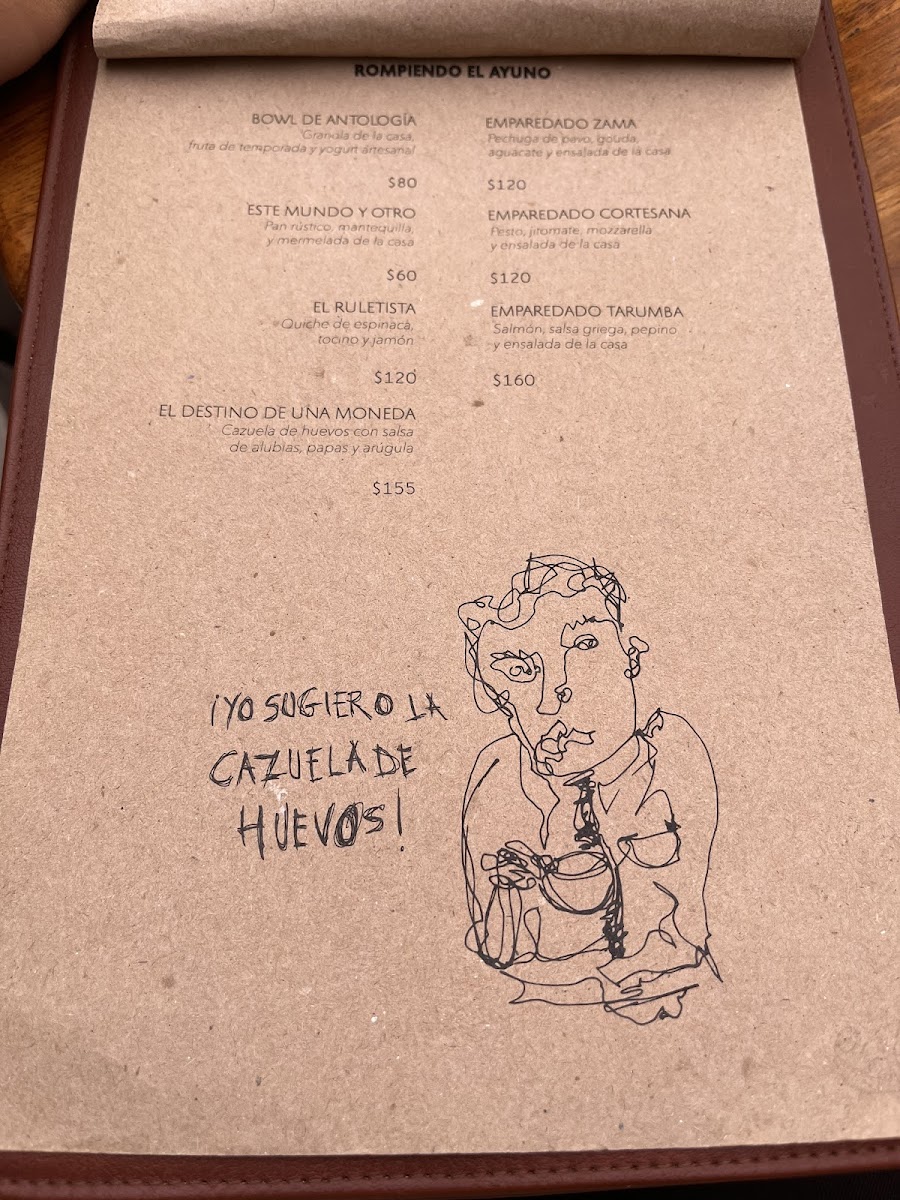 ROMPIENDO EL AYUNO
BOWL DE ANTOLOGÍA
Granola de la casa,
fruta de temporada y yogurt artesanal
$80
ESTE MUNDO Y OTRO
Pan rústico, mantequilla,
y mermelada de la casa
$60
EL RULETISTA
Quiche de espinaca,
tocino y jamón
$120
EL DESTINO DE UNA MONEDA
Cazuela de huevos con salsa
de alubias, papas y arúgula
$155
EMPAREDADO ZAMA
Pechuga de pavo, gouda,
aguacate y ensalada de la casa
$120
EMPAREDADO CORTESANA
Pesto, jitomate, mozzarella
y ensalada de la casa
$120
EMPAREDADO TARUMBA
Salmón, salsa griega, pepino
y ensalada de la casa
$160
¡YO SUGIERO LA
CAZUELA DE
HUEVOS!